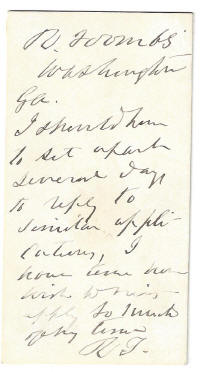 R. Toombs
Washington
Ga.
I should have
to set apart
several days
to reply to
similar appli
cations, I
have time nor
wish to
apply so much
of my time
R T.